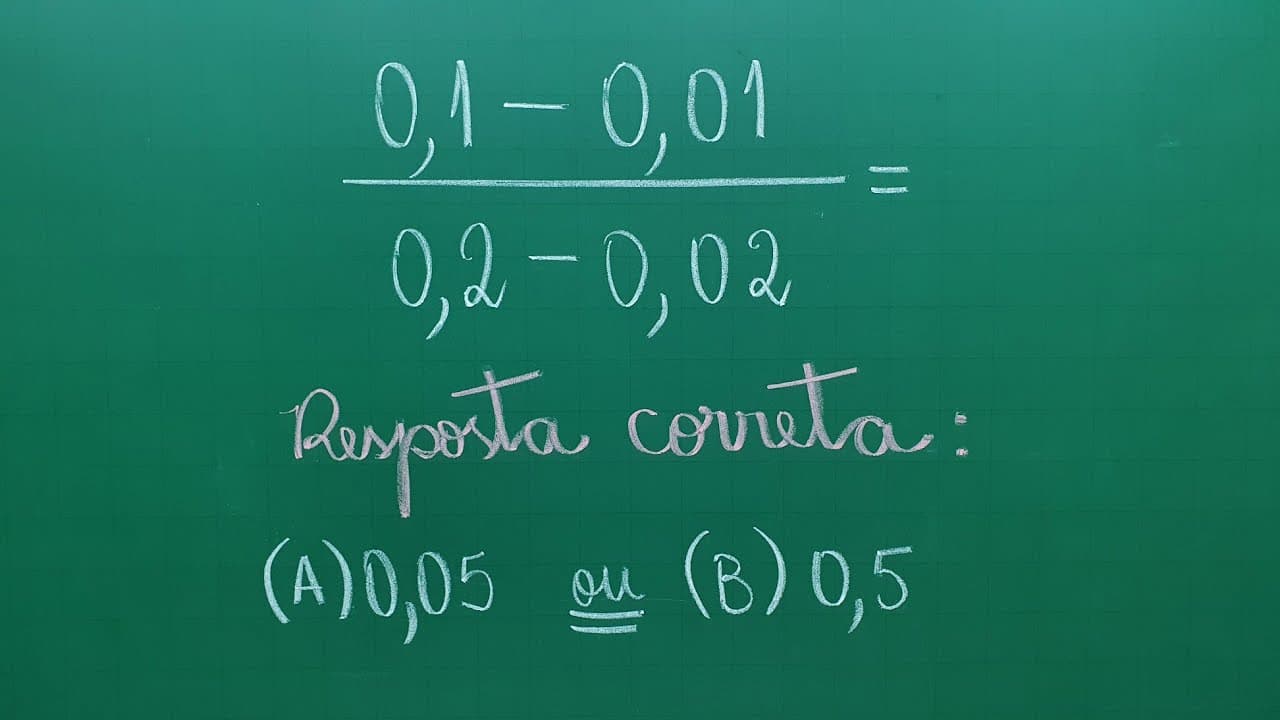 0,1 - 0,01
=
0,2 - 0,02
Resposta correta:
(A) 0,05 ou (B) 0,5